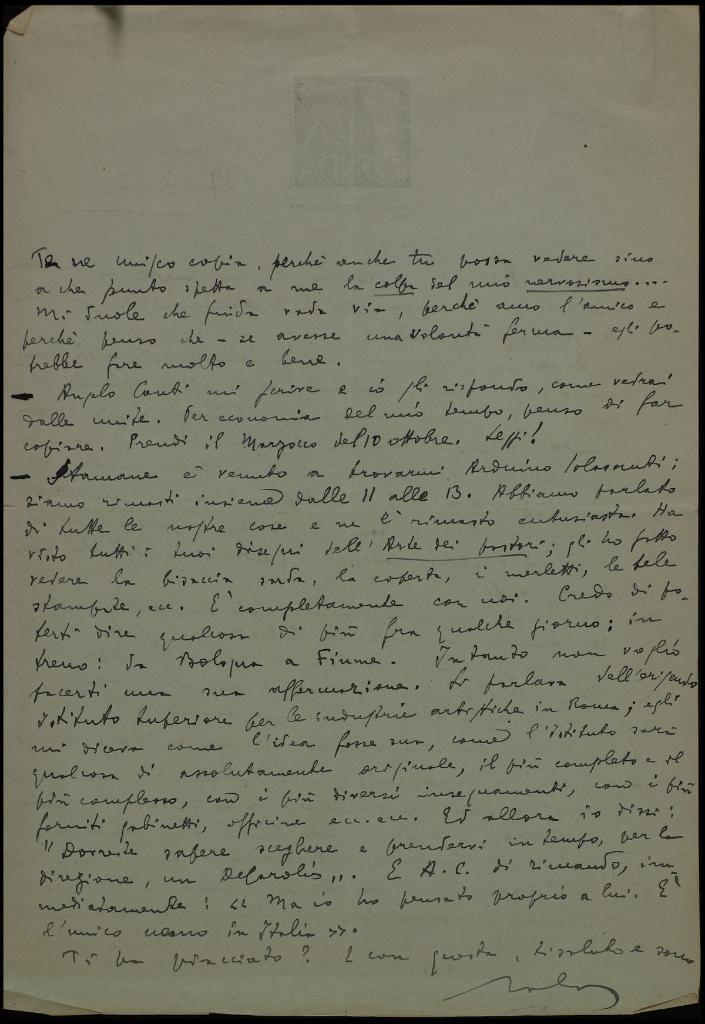 Te ne unisco copia, perché anche tu possa vedere sino
a che punto spetta a me la colpa del mio nervosismo....
Mi duole che guida vada via, perché amo l'amico e
perché penso che – se avesse una volontà ferma – egli po-
trebbe fare molto e bene.
– Angelo Conti mi scrive e io gli rispondo, come vedrai
dalle unite. Per economia del mio tempo, penso di far
copiare. Prendi il Marzocco del 10 ottobre. Leggi!
– Stamane è venuto a trovarmi Arduino Colasanti;
siamo rimasti insieme dalle 11 alle 13. Abbiamo parlato
di tutte le nostre cose e ne è rimasto entusiasta. Ha
visto tutti i tuoi disegni dell'Arte dei pastori; gli ho fatto
vedere la bisaccia sarda, la coperta, i merletti, le tele
stampate, ecc. È completamente con noi. Credo di po-
terti dire qualcosa di più fra qualche giorno; in
treno: da Bologna a Fiume. Intanto non voglio
tacerti una sua affermazione. Si parlava dell'erigendo
Istituto Superiore per le industrie artistiche in Roma; egli
mi diceva come l'idea fosse sua, come l'Istituto sarà
qualcosa di assolutamente originale, il più completo e il
più complesso, con i più diversi insegnamenti, con i più
forniti gabinetti, officine ecc. ecc. Ed allora io dissi:
"Dovreste sapere scegliere e prendervi in tempo, per la
direzione, un DeCarolis,,. E A.C. di rimando, im-
mediatamente: « Ma io ho pensato proprio a lui. È
l'unico uomo in Italia ».
Ti ha piacciato? E con questa, ti saluto e sono